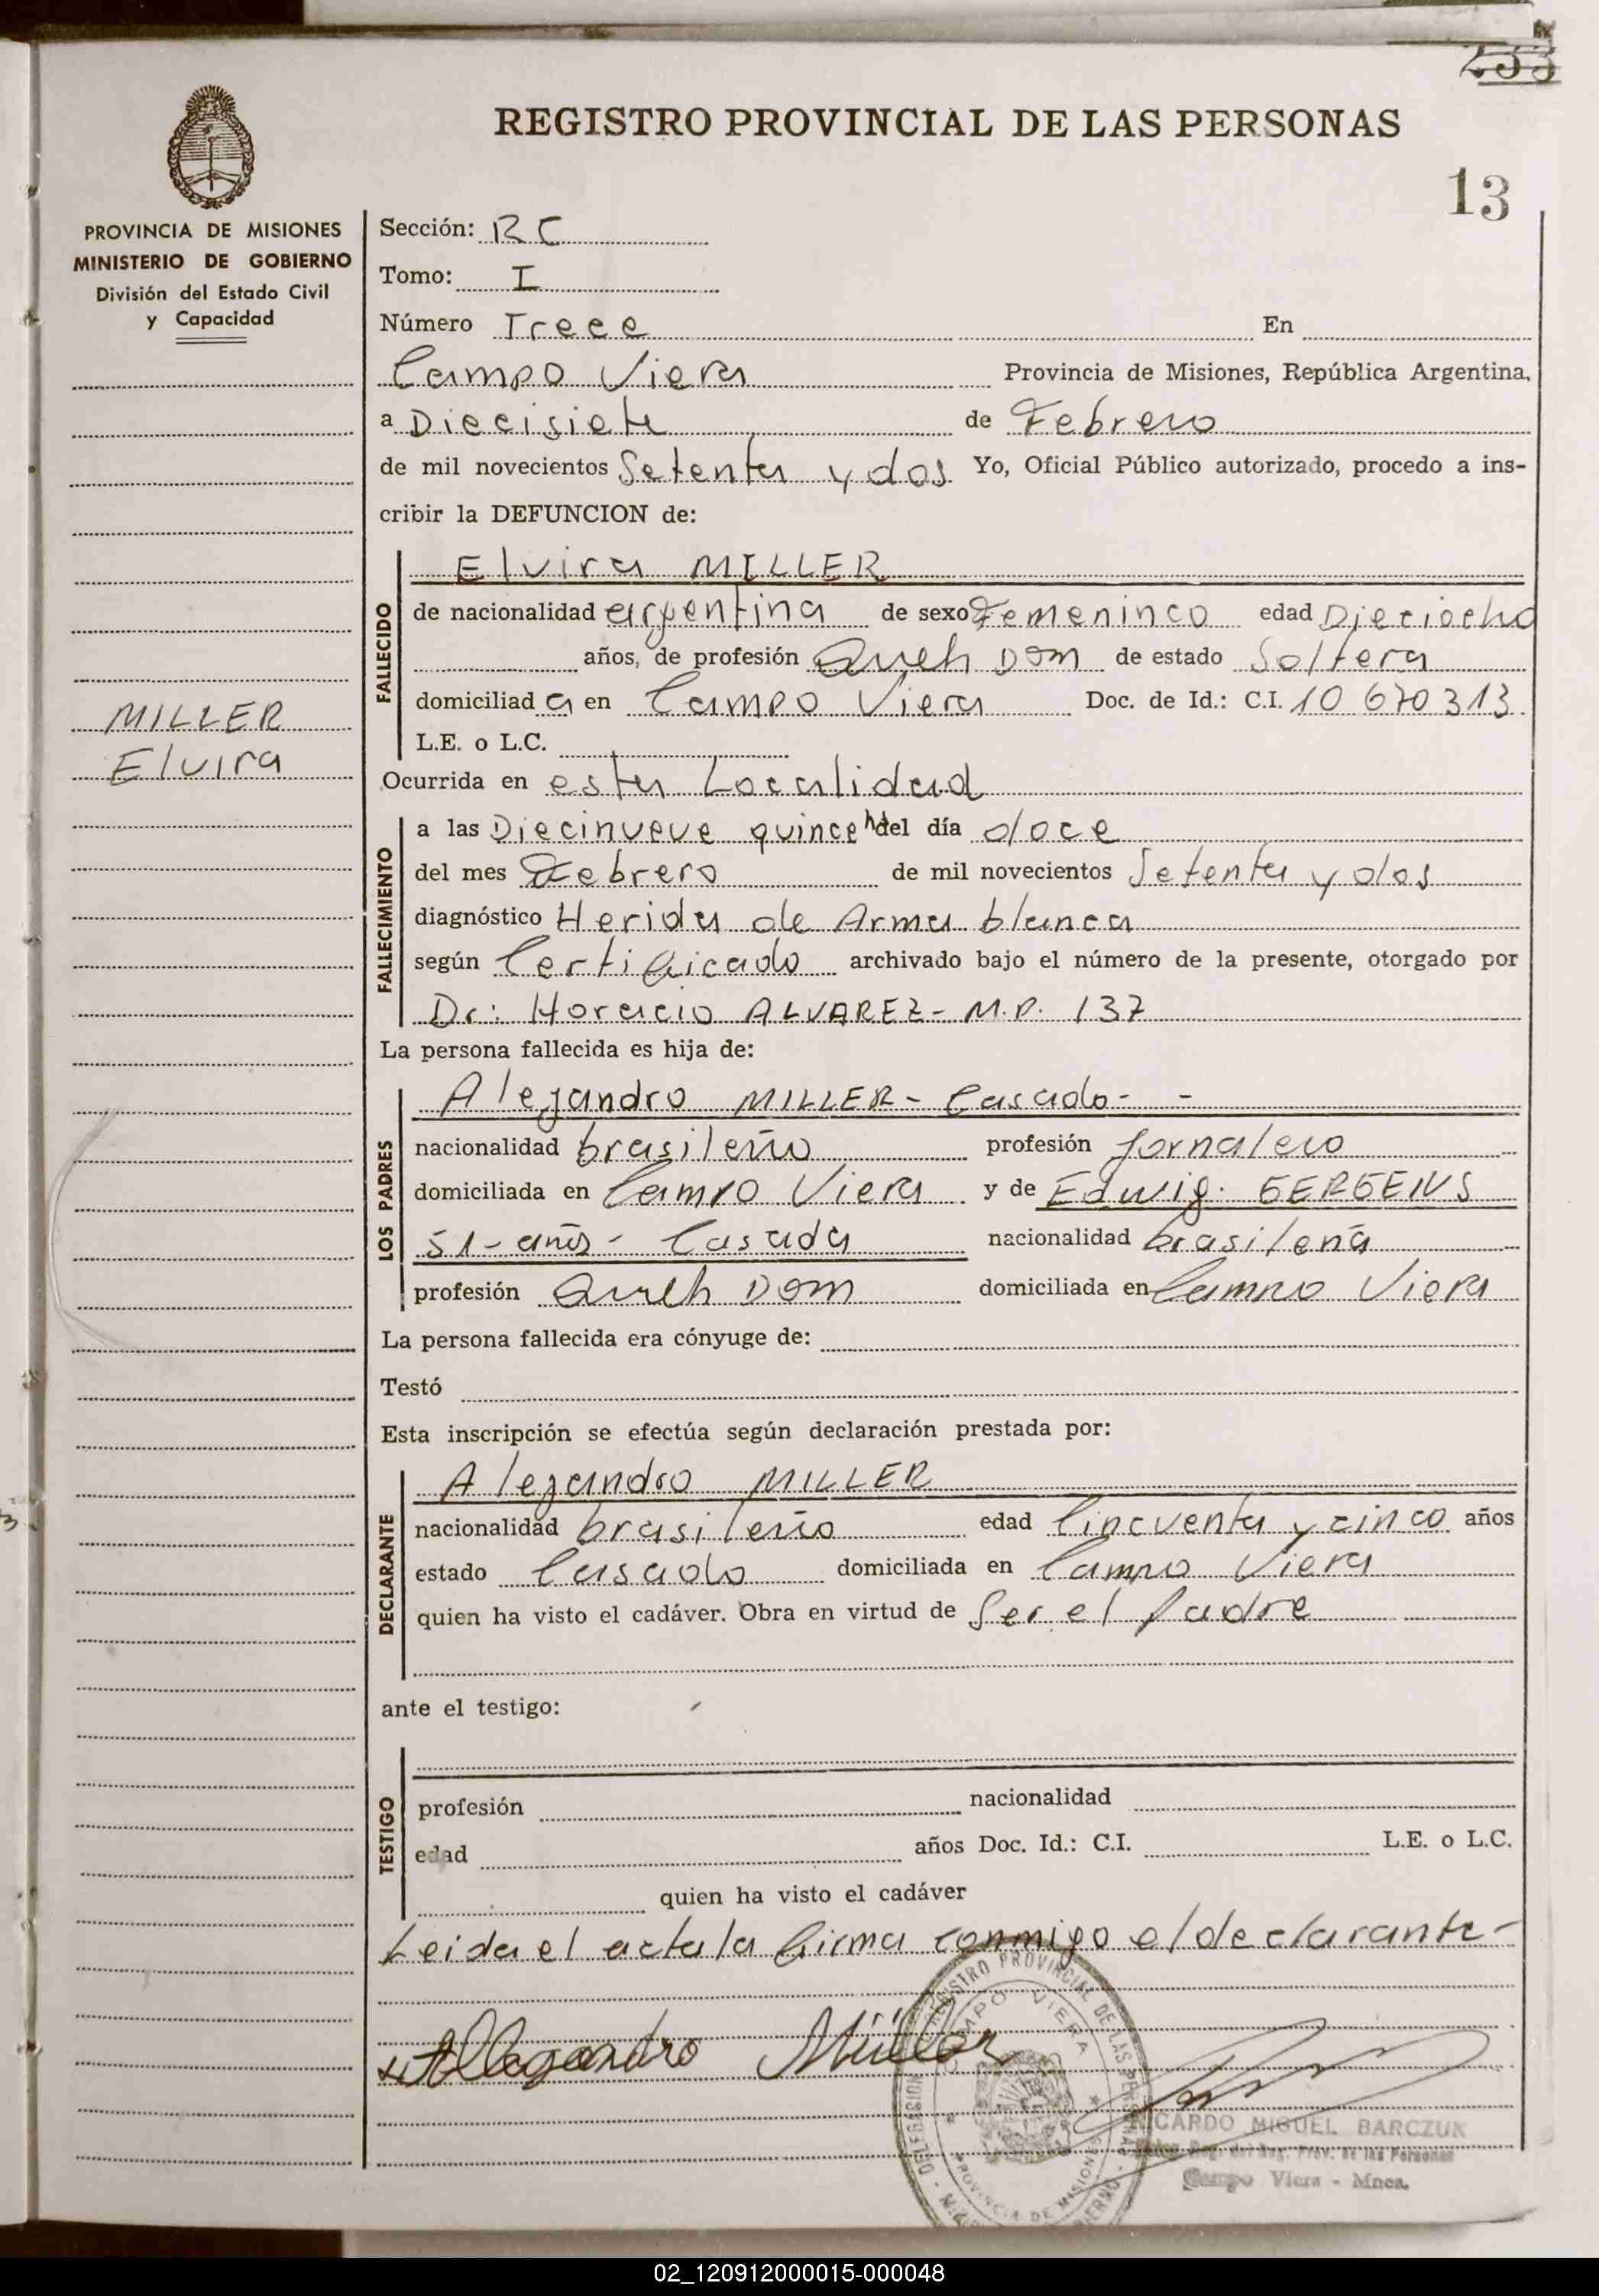 233
REGISTRO PROVINCIAL DE LAS PERSONAS
13
PROVINCIA DE MISIONES
MINISTERIO DE GOBIERNO
División del Estado Civil
y Capacidad
MILLER
Elvira
Sección: RC
Tomo: I
Número Trece En
Campo Viera Provincia de Misiones, República Argentina,
a Diecisiete de Febrero
de mil novecientos Setenta y dos Yo, Oficial Público autorizado, procedo a ins-
cribir la DEFUNCION de:
FALLECIDO
Elvira MILLER
de nacionalidad argentina de sexo Femeninco edad Dieciocho
años, de profesión Queh Dom de estado Soltera
domiciliad a en Campo Viera Doc. de Id.: C.I. 10 670 313
L.E. o L.C.
Ocurrida en esta Localidad
FALLECIMIENTO
a las Diecinueve quince hs del día doce
del mes Febrero de mil novecientos Setenta y dos
diagnóstico Herida de Arma blanca
según Certificado archivado bajo el número de la presente, otorgado por
Dr: Horacio ALVAREZ - M.P. 137
La persona fallecida es hija de:
LOS PADRES
Alejandro MILLER - Casado - -
nacionalidad brasileño profesión Jornalero
domiciliada en Campo Viera y de Edwig. GERGENS
51 - años - Casada nacionalidad brasileña
profesión Queh Dom domiciliada en Campo Viera
La persona fallecida era cónyuge de:
Testó
Esta inscripción se efectúa según declaración prestada por:
DECLARANTE
Alejandro MILLER
nacionalidad brasileño edad Cincuenta y cinco años
estado Casado domiciliada en Campo Viera
quien ha visto el cadáver. Obra en virtud de Ser el Padre
ante el testigo:
TESTIGO
profesión nacionalidad
edad años Doc. Id.: C.I. L.E. o L.C.
quien ha visto el cadáver
Leida el acta la firma conmigo el declarante -
Allegandro Müller
DELEGACION REGISTRO PROVINCIAL DE LAS PERSONAS
CAMPO VIERA
PROVINCIA DE MISIONES
RICARDO MIGUEL BARCZUK
Reg. Prov. de las Personas
Campo Viera - Mnes.
02_120912000015-000048